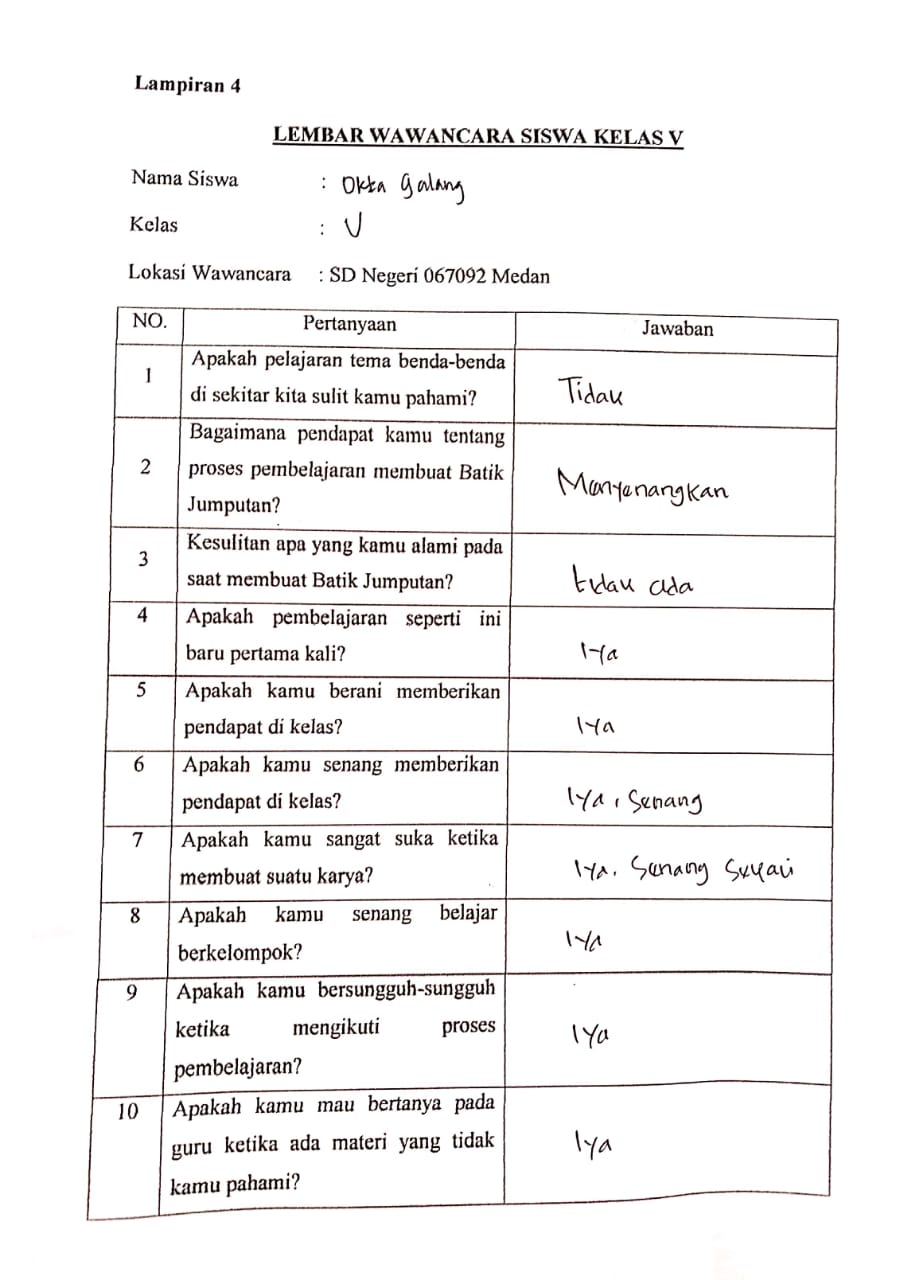 Lampiran 4
LEMBAR WAWANCARA SISWA KELAS V
Nama Siswa : Okta Galang
Kelas : V
Lokasi Wawancara : SD Negeri 067092 Medan
NO. Pertanyaan Jawaban
1 Apakah pelajaran tema benda-benda
di sekitar kita sulit kamu pahami?
Tidak
2 Bagaimana pendapat kamu tentang
proses pembelajaran membuat Batik
Jumputan?
Menyenangkan
3 Kesulitan apa yang kamu alami pada
saat membuat Batik Jumputan?
tidak ada
4 Apakah pembelajaran seperti ini
baru pertama kali?
Iya
5 Apakah kamu berani memberikan
pendapat di kelas?
Iya
6 Apakah kamu senang memberikan
pendapat di kelas?
Iya, Senang
7 Apakah kamu sangat suka ketika
membuat suatu karya?
Iya, Senang Sekali
8 Apakah kamu senang belajar
berkelompok?
Iya
9 Apakah kamu bersungguh-sungguh
ketika mengikuti proses
pembelajaran?
Iya
10 Apakah kamu mau bertanya pada
guru ketika ada materi yang tidak
kamu pahami?
Iya